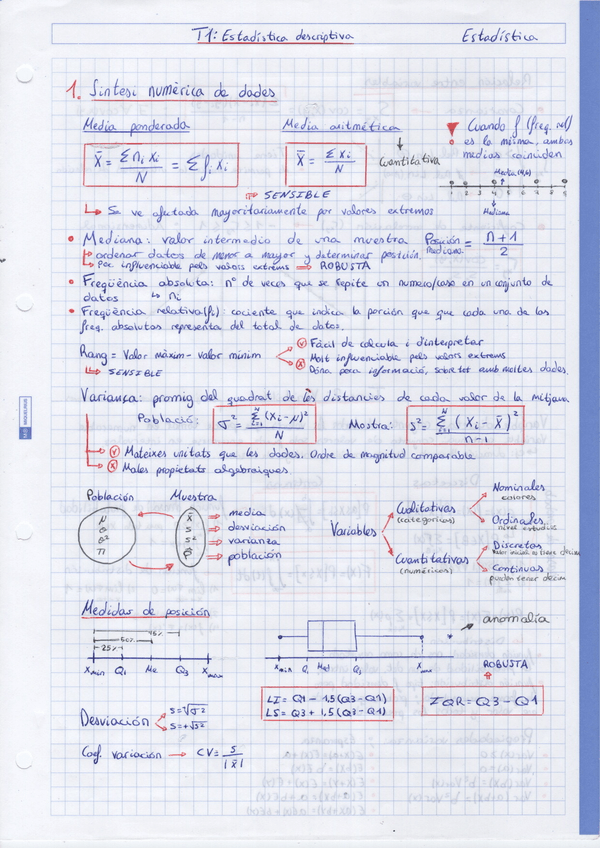 T1: Estadística descriptiva Estadística
1. Síntesi numèrica de dades
Media ponderada
Media aritmética
Cuando f (freq. rel)
es la misma, ambas
medias coinciden
X̄ = Σ ni xi / N = Σ fi xi
X̄ = Σ xi / N
Cuantitativa
Mediana
⇒ SENSIBLE
Se ve afectada mayoritariamente por valores extremos
• Mediana: valor intermedio de una muestra Posición mediana = n+1 / 2
ordenar datos de menor a mayor y determinar posición.
Poc influenciable pels valors extrems ⇒ ROBUSTA
• Freqüència absoluta: nº de veces que se repite un numero/caso en un conjunto de
datos ↳ ni
• Freqüència relativa (fi): cociente que indica la porción que que cada una de las
freq. absolutas representa del total de datos.
Rang = Valor màxim - valor mínim
Fàcil de calcula i d'interpretar
Molt influenciable pels valors extrems
Dóna poca informació, sobretot amb moltes dades.
↳ SENSIBLE
Variança: promig del quadrat de les distancies de cada valor de la mitjana
Població: σ² = Σ (xi - μ)² / N
Mostra: s² = Σ (xi - x̄)² / n-1
Mateixes unitats que les dades. Ordre de magnitud comparable
Males propietats algebraiques
Población Muestra
μ x̄ ⇒ media
σ s ⇒ desviación
σ² s² ⇒ varianza
π p̂ ⇒ población
Variables
Cualitativas
(categóricas)
Nominales
colores
Ordinales
nivel estudios
Cuantitativas
(numéricas)
Discretas
Continuas
pueden tener decim
Medidas de posición
anomalía
75%
50%
25%
xmin Q1 Me Q3 xmax
xmin Q1 Med Q3 xmax
ROBUSTA
LI = Q1 - 1,5 (Q3 - Q1)
LS = Q3 + 1,5 (Q3 - Q1)
IQR = Q3 - Q1
Desviación
S = √σ²
S = +√S²
Coef. variación → CV = S / |x̄|